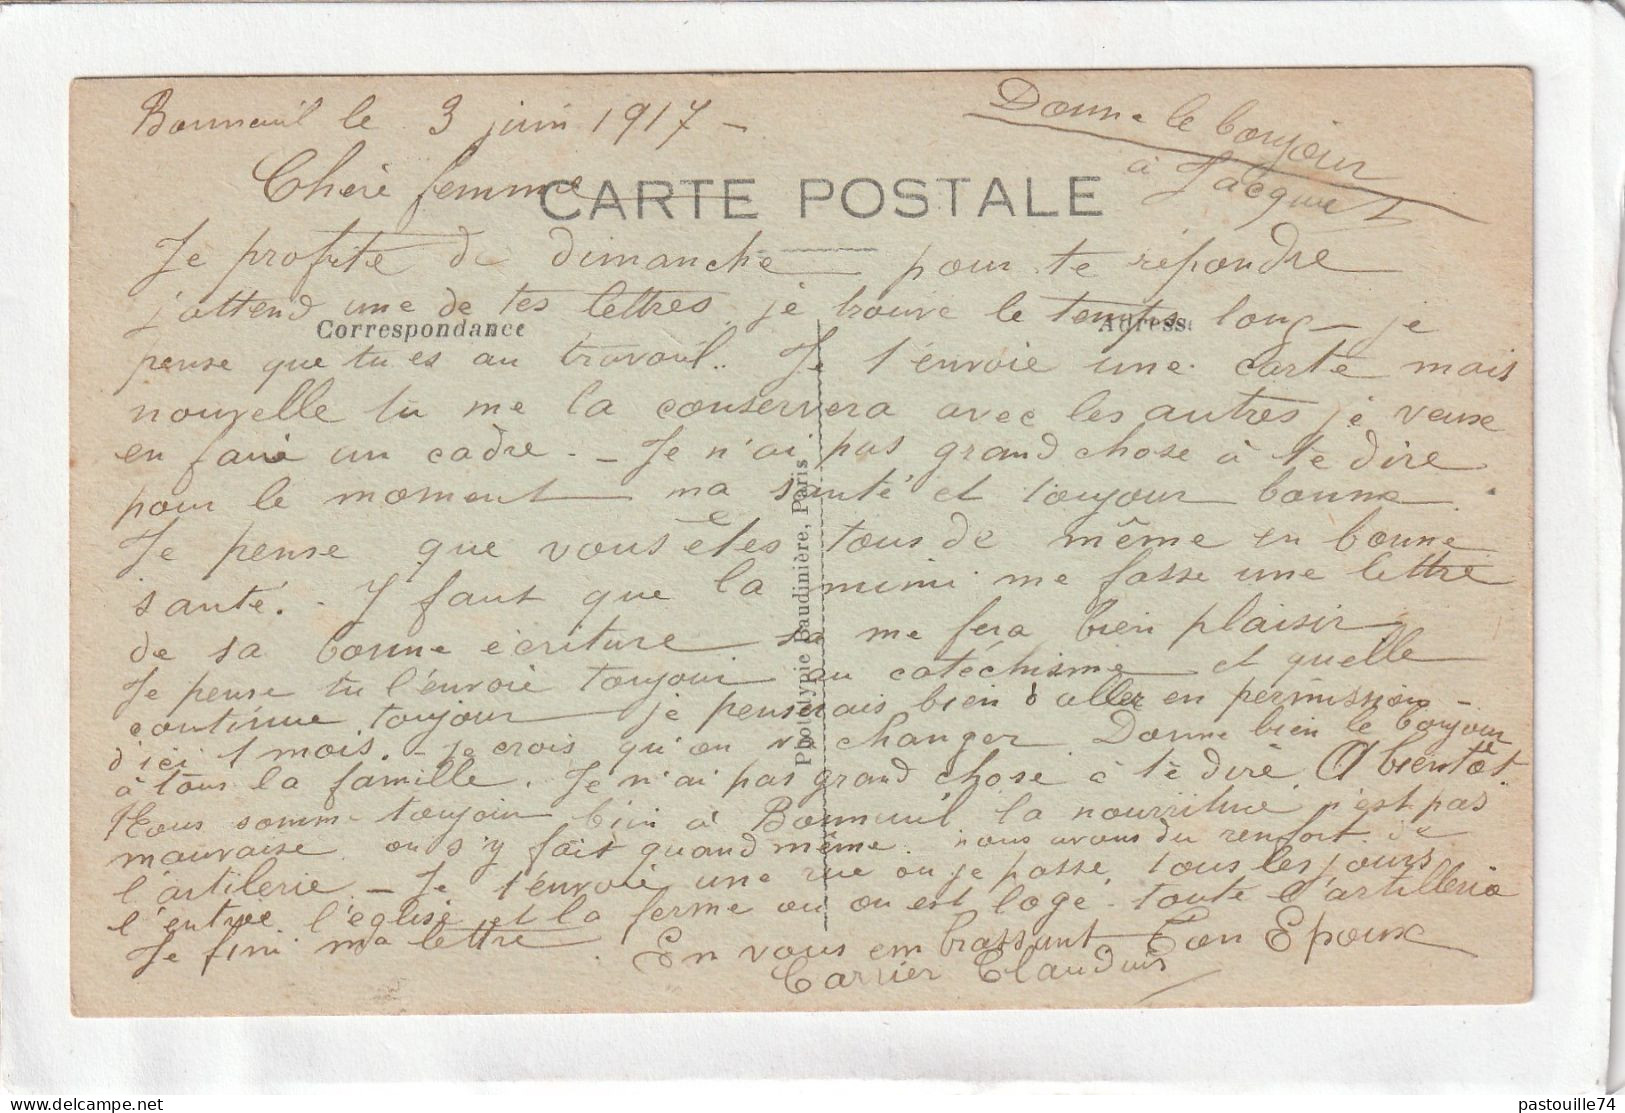 Bonneuil le 3 juin 1917 -
Donne le bonjour
à Jacquet
Chère femme
CARTE POSTALE
Je profite de dimanche pour te répondre
j'attend une de tes lettres je trouve le temps long - je
Correspondance
Adresse
pense que tu es au travail. Je t'envoie une carte mais
nouvelle tu me la conservera avec les autres je veux
en faire un cadre. - Je n'ai pas grand chose à te dire
pour le moment ma santé et toujour bonne.
Je pense que vous êtes tous de même en bonne
santé. - Y faut que la mimi me fasse une lettre
de sa bonne écriture sa me fera bien plaisir
Je pense tu l'envoie toujour au catéchisme et quelle
continue toujour je penserais bien d'aller en permission
d'ici 1 mois. - je crois qu'on va changer Donne bien le bonjour
à tous la famille. Je n'ai pas grand chose à te dire A bientôt.
Nous somme toujour bien à Bonneuil la nourriture n'est pas
mauvaise on s'y fait quand même. nous avons du renfort de
l'artilerie - Je t'envoie une rue ou je passe tous les jours
l'entrée l'église et la ferme ou on est logé. toute l'artillerie
Je fini ma lettre. En vous embrassant Ton Epoux
Carrier Claudius
Phototypie Baudinière, Paris
pastouille74